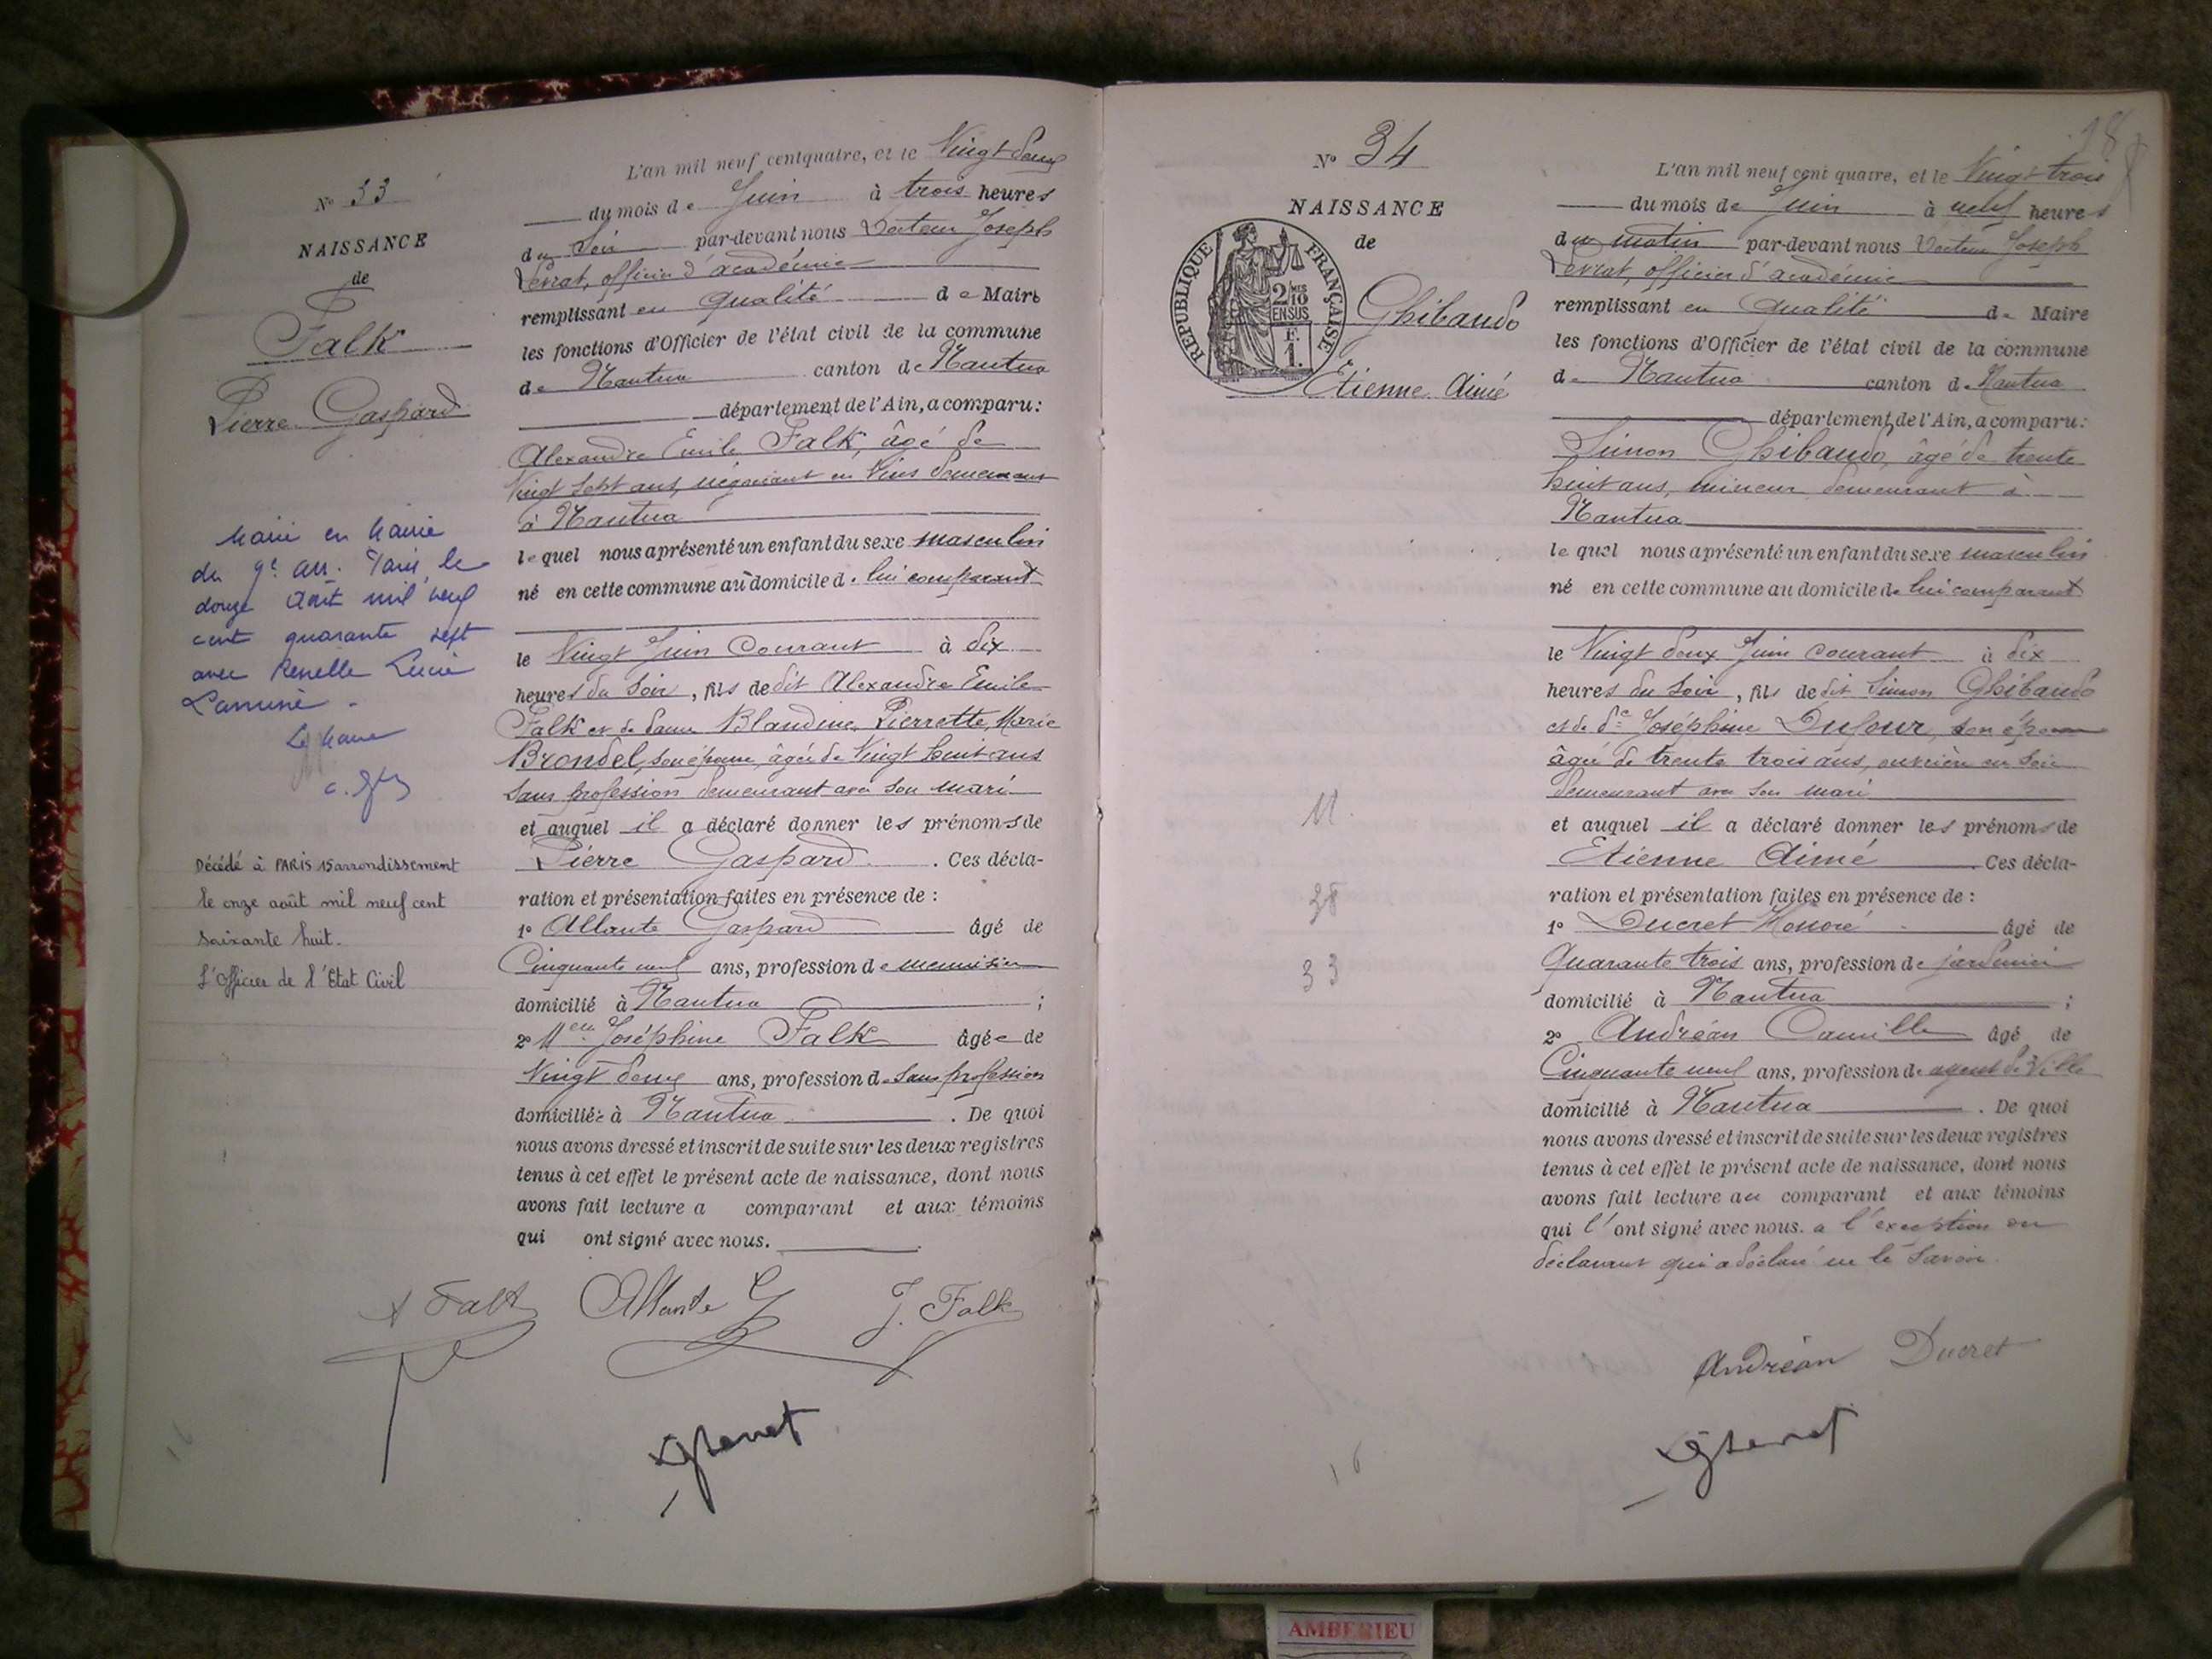 N° 33
NAISSANCE
de
Falk
Pierre Gaspard
Marié en Mairie
du 9e arr. Paris, le
douze Août mil neuf
cent quarante sept
avec Renelle Lucie
Le Maire
Décédé à PARIS 15 arrondissement
le onze août mil neuf cent
soixante huit.
L'Officier de l'Etat Civil
L'an mil neuf cent quatre, et le Vingt deux
du mois de Juin à trois heures
du Soir par-devant nous Docteur Joseph
Levrat, officier d'académie
remplissant en qualité de Maire
les fonctions d'Officier de l'état civil de la commune
de Nantua canton de Nantua
département de l'Ain, a comparu :
Alexandre Emile Falk, âgé de
Vingt sept ans, négociant en Vins demeurant
à Nantua
lequel nous a présenté un enfant du sexe masculin
né en cette commune au domicile de lui comparant
le Vingt Juin Courant à dix
heures du Soir, fils de dit Alexandre Emile
Falk et de Dame Blandine, Pierrette, Marie
Brondel, son épouse, âgée de Vingt huit ans
Sans profession demeurant avec son mari
et auquel il a déclaré donner les prénoms de
Pierre Gaspard. Ces décla-
ration et présentation faites en présence de :
1° Allante Gaspard âgé de
Cinquante neuf ans, profession de menuisier
domicilié à Nantua ;
2° Melle Joséphine Falk âgée de
Vingt deux ans, profession d. Sans profession
domiciliée à Nantua. De quoi
nous avons dressé et inscrit de suite sur les deux registres
tenus à cet effet le présent acte de naissance, dont nous
avons fait lecture a comparant et aux témoins
qui ont signé avec nous.
A Falk Allante G J. Falk
16
N° 34
NAISSANCE
de
REPUBLIQUE FRANÇAISE
2/10 MES
EN SUS
F.
1.
Ghibaudo
Etienne Aimé
11.
28
33
16
18
L'an mil neuf cent quatre, et le Vingt trois
du mois de Juin à neuf heures
du matin par-devant nous Docteur Joseph
Levrat, officier d'académie
remplissant en qualité de Maire
les fonctions d'Officier de l'état civil de la commune
de Nantua canton de Nantua
département de l'Ain, a comparu :
Simon Ghibaudo, âgé de trente
huit ans, mineur demeurant à
Nantua
lequel nous a présenté un enfant du sexe masculin
né en cette commune au domicile de lui comparant
le Vingt deux Juin courant à dix
heures du Soir, fils de dit Simon Ghibaudo
et de de Joséphine Dufour, son épouse
âgée de trente trois ans, ouvrière en Soie
demeurant avec son mari
et auquel il a déclaré donner les prénoms de
Etienne Aimé. Ces décla-
ration et présentation faites en présence de :
1° Ducret Honoré âgé de
Quarante trois ans, profession de jardinier
domicilié à Nantua ;
2° Andréan Camille âgé de
Cinquante neuf ans, profession de agent de Ville
domicilié à Nantua. De quoi
nous avons dressé et inscrit de suite sur les deux registres
tenus à cet effet le présent acte de naissance, dont nous
avons fait lecture au comparant et aux témoins
qui l'ont signé avec nous. a l'exception du
déclarant qui a déclaré ne le Savoir.
Andréan Ducret
AMBERIEU